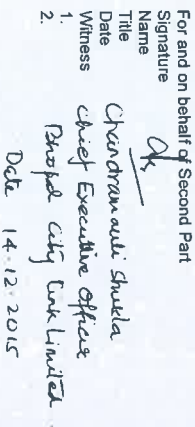 For and on behalf of Second Part
Signature
Name Chandramauli Shukla
Title Chief Executive Officer
Date Bhopal City Link Limited.
Witness
1.
2. Date 14.12.2015